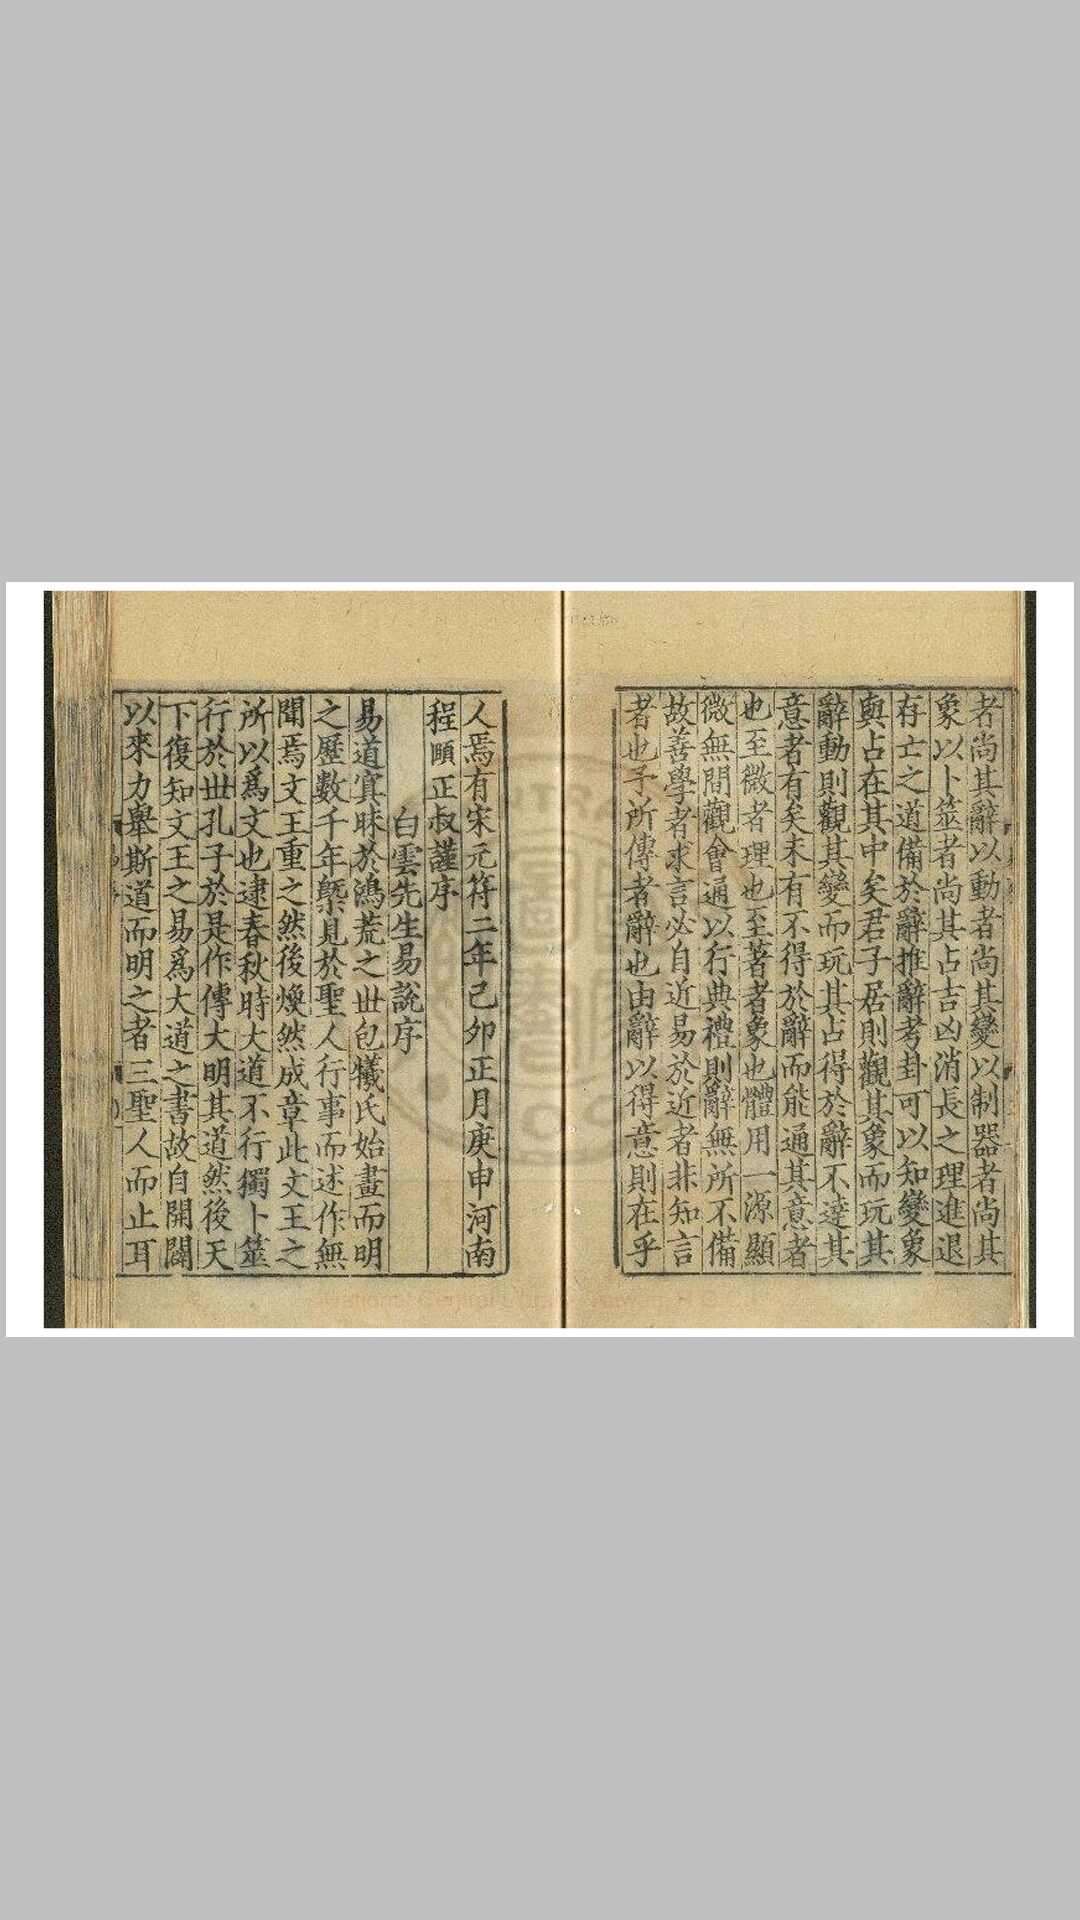 者尚其辭以動者尚其變以制器者尚其
象以卜筮者尚其占吉凶消長之理進退
存亡之道備於辭推辭考卦可以知變象
與占在其中矣君子居則觀其象而玩其
辭動則觀其變而玩其占得於辭不達其
意者有矣未有不得於辭而能通其意者
也至微者理也至著者象也體用一源顯
微無間觀會通以行典禮則辭無所不備
故善學者求言必自近易於近者非知言
者也予所傳者辭也由辭以得意則在乎
人焉有宋元符二年己卯正月庚申河南
程頤正叔謹序
白雲先生易說序
易道寘昧於鴻荒之世包犧氏始畫而明
之歷數千年槩見於聖人行事而述作無
聞焉文王重之然後煥然成章此文王之
所以爲文也逮春秋時大道不行獨卜筮
行於世孔子於是作傳大明其道然後天
下復知文王之易爲大道之書故自開闢
以來力舉斯道而明之者三聖人而止耳
National Central Library